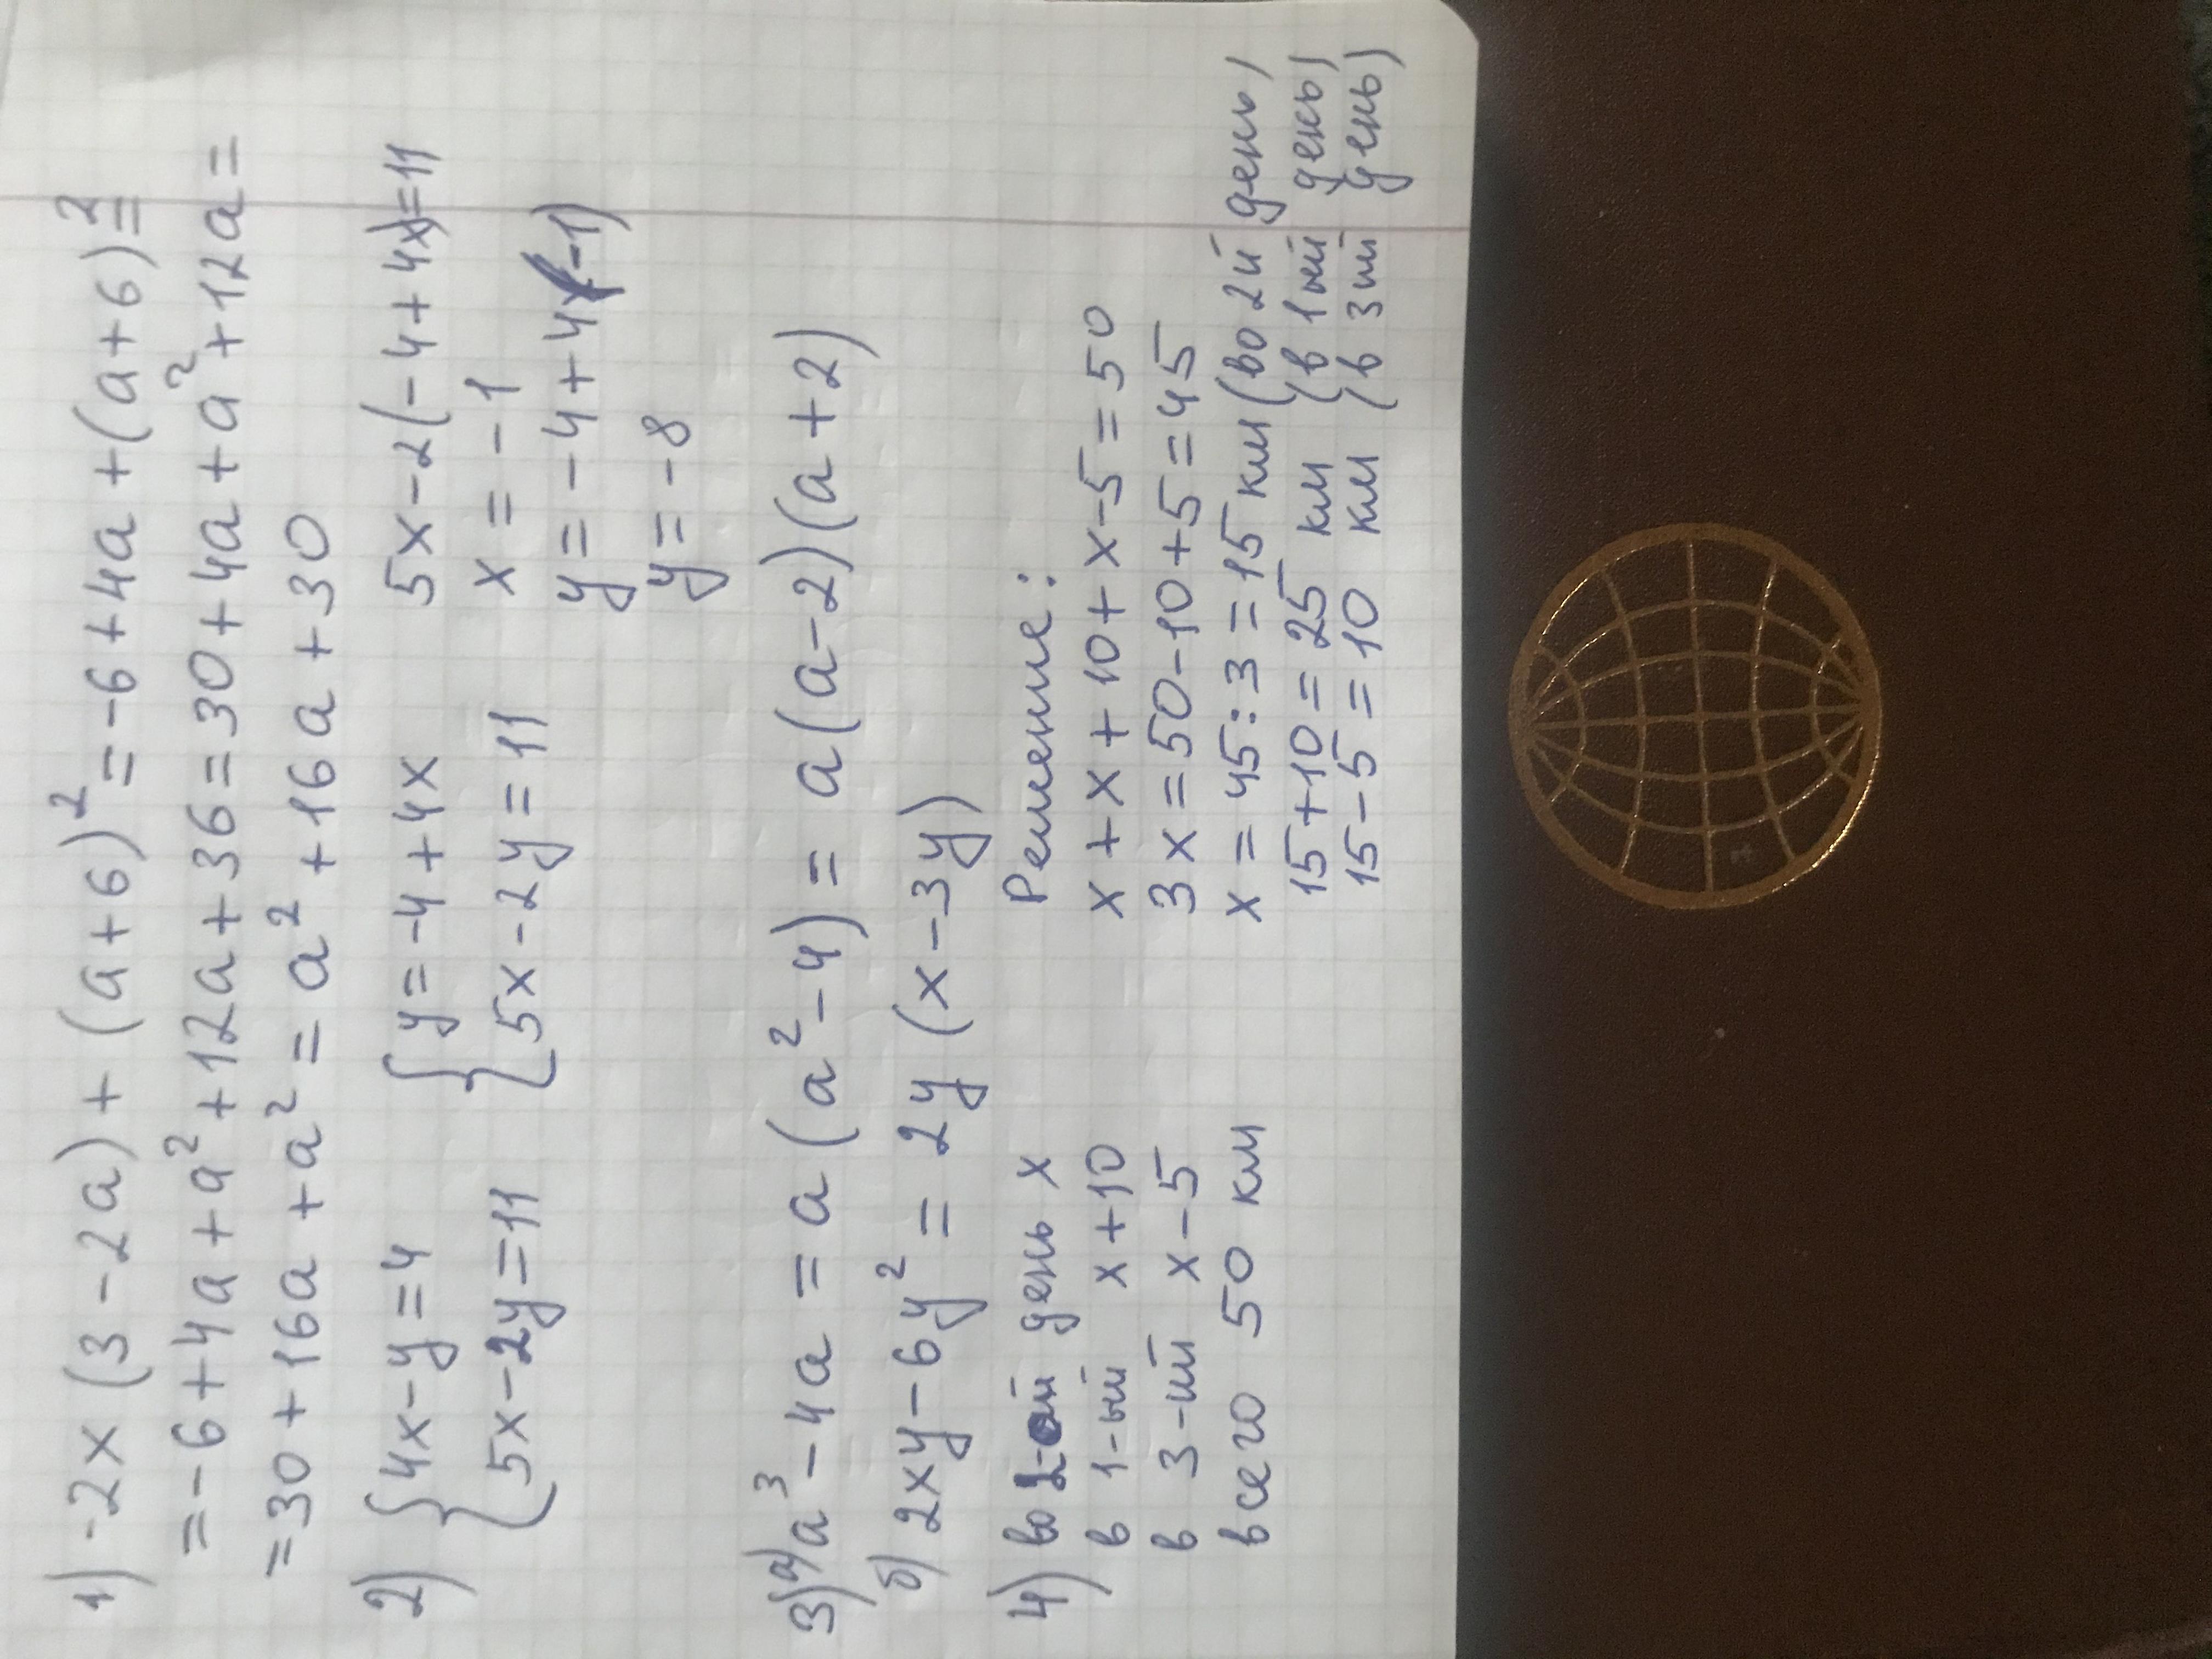 1) -2x (3-2a) + (a+6)² = -6+4a+(a+6)²=
= -6+4a+a²+12a+36 = 30+4a+a²+12a =
= 30+16a+a² = a²+16a+30
2) { 4x-y=4 { y=-4+4x 5x-2(-4+4x)=11
5x-2y=11 5x-2y=11 x=-1
y=-4+4(-1)
y=-8
3) а) a³-4a = a(a²-4) = a(a-2)(a+2)
б) 2xy-6y² = 2y(x-3y)
4) во 2-ой день x Решение:
в 1-ый x+10 x+x+10+x-5=50
в 3-ий x-5 3x=50-10+5=45
всего 50 км x=45:3=15 км (во 2й день)
15+10=25 км (в 1ый день)
15-5=10 км (в 3ий день)